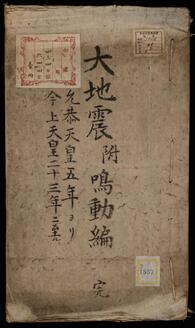 大地震附鳴動編
允恭天皇五年ヨリ
今上天皇二十三年ニ至ル
完